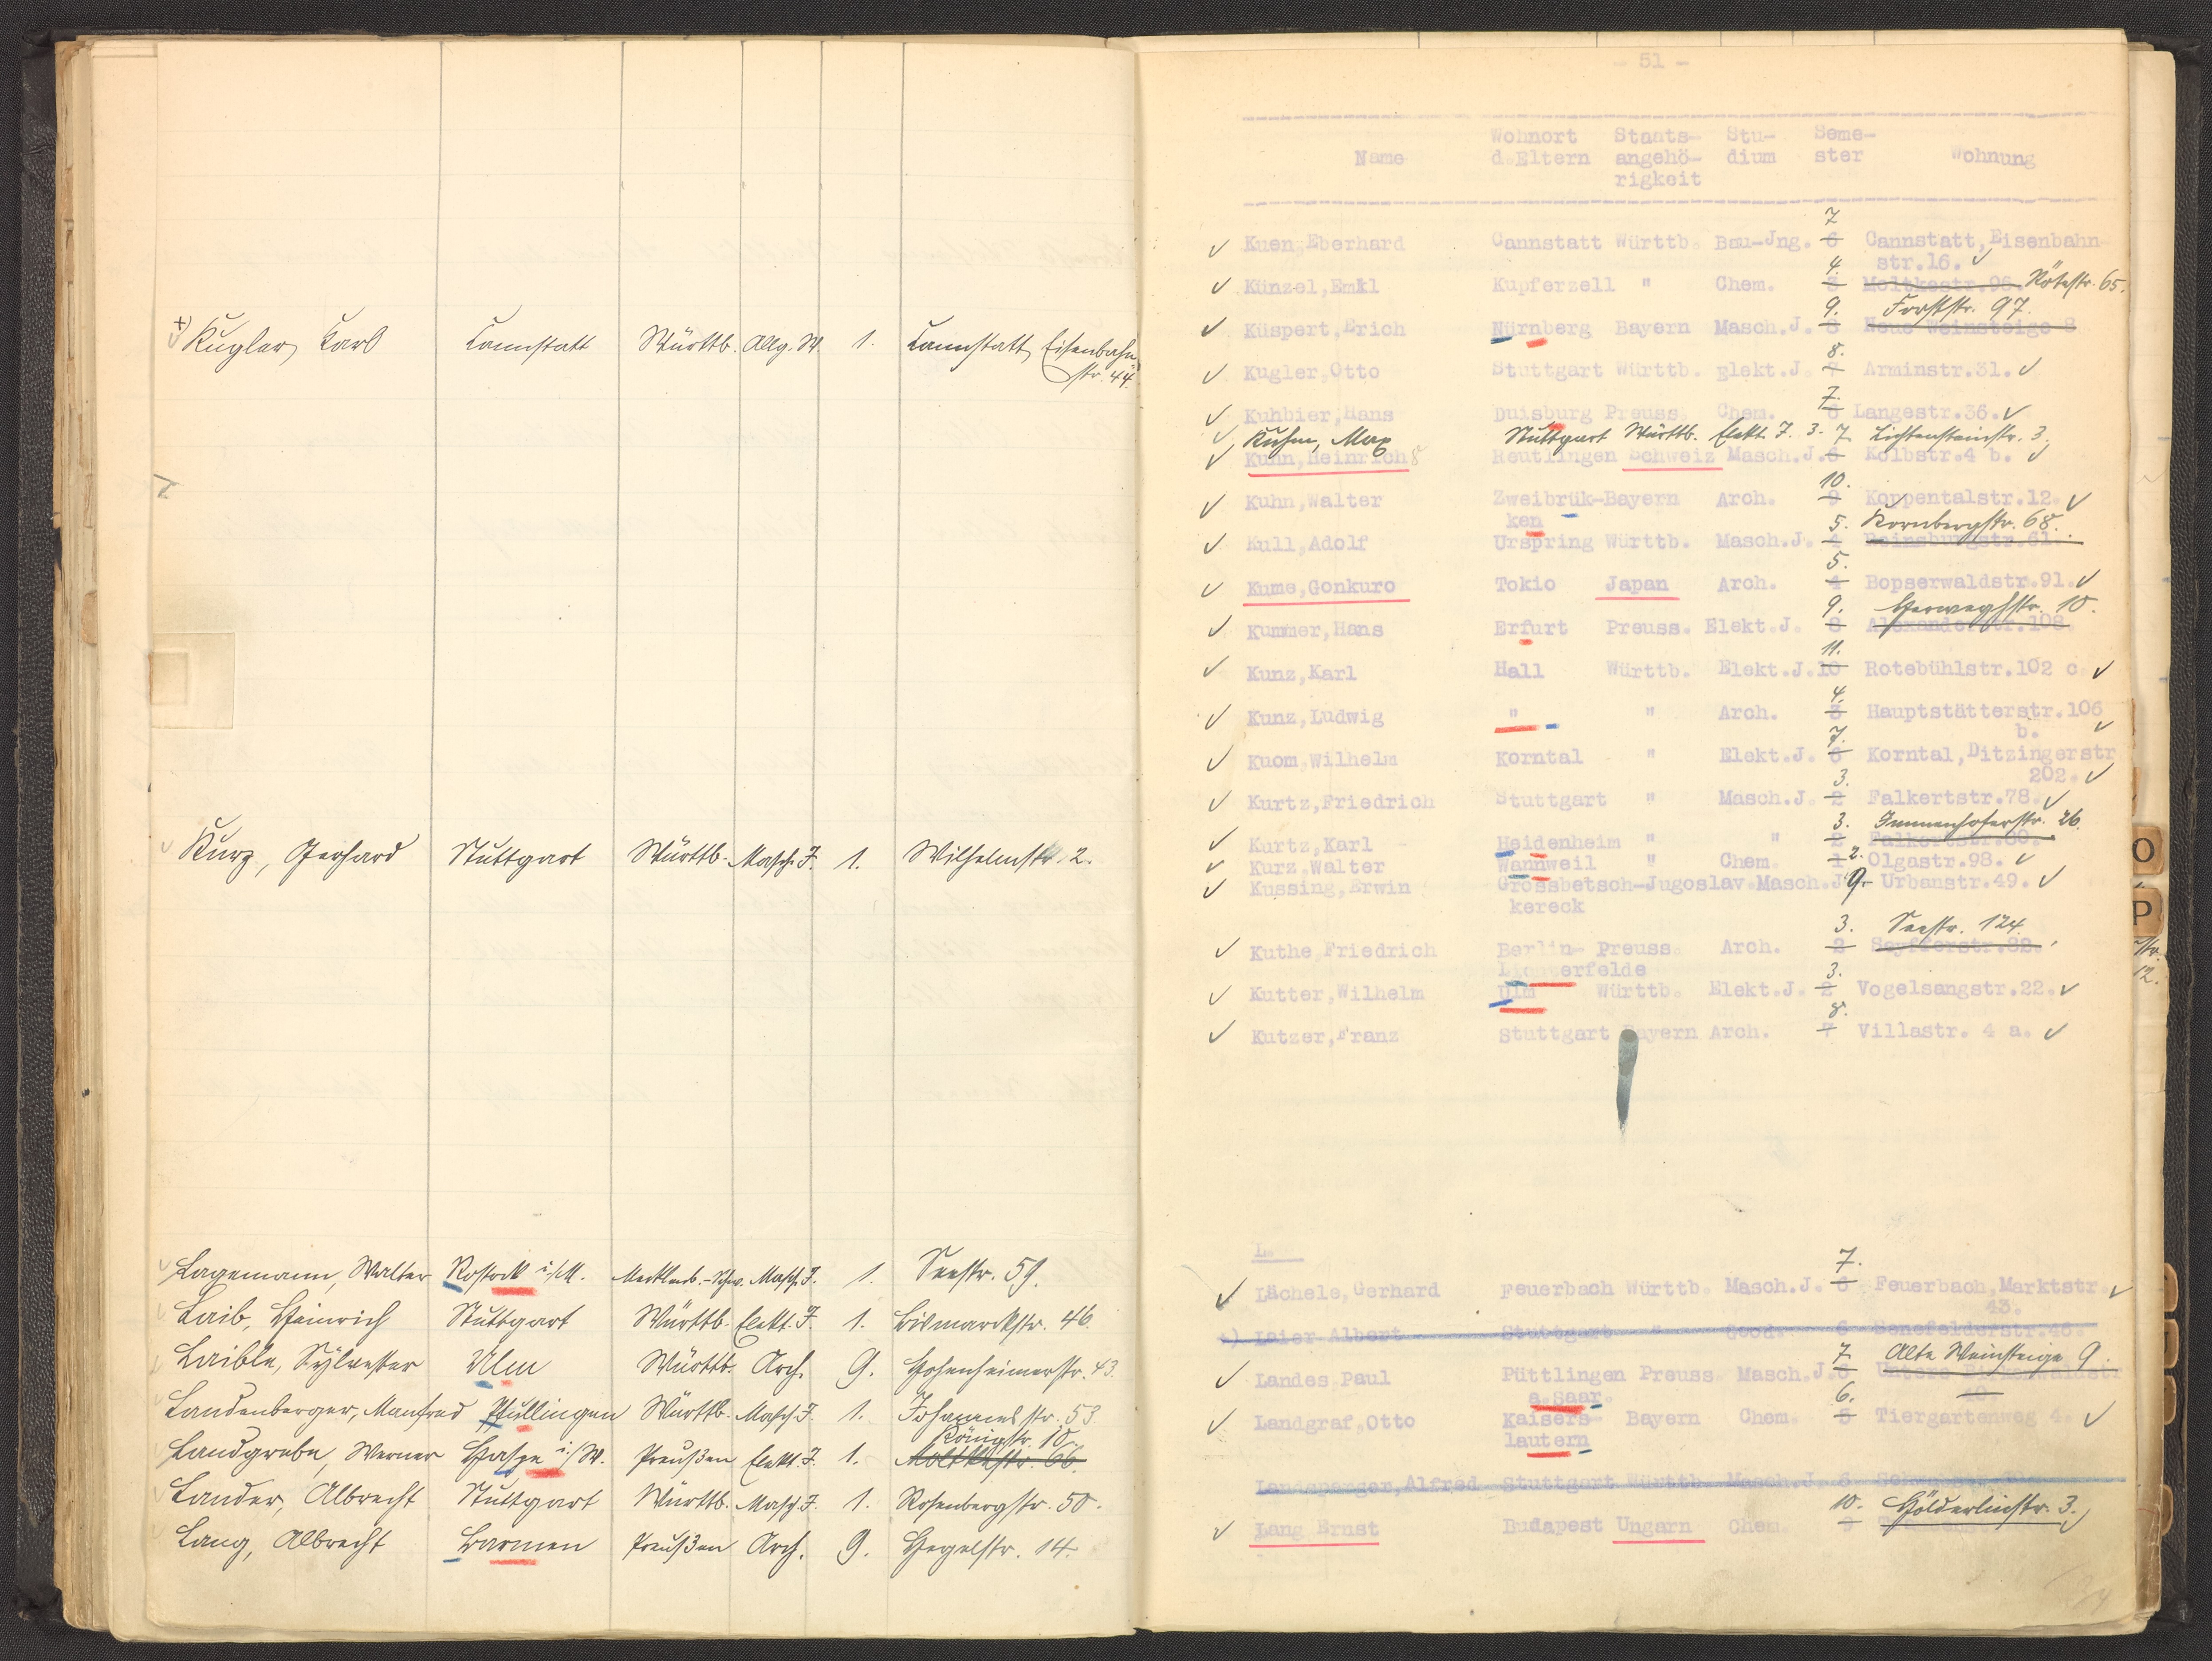 Kugler, Karl Cannstatt Württb. Allg. W. 1. Cannstatt, Eisenbahn-
str. 44.
Kurz, Gerhard Stuttgart Württb. Masch. J. 1. Wilhelmstr. 2.
Lagemann, Walter Rostock i/M. Mecklenb.-Schw. Masch. J. 1. Seestr. 59.
Laib, Heinrich Stuttgart Württb. Elekt. J. 1. Bismarckstr. 46.
Laible, Sylvester Ulm Württb. Arch. 9. Hohenheimerstr. 43.
Landenberger, Manfred Pfullingen Württb. Masch. J. 1. Johannesstr. 53.
Königstr. 10.
Landgrebe, Werner Haspe i/W. Preußen Elekt. J. 1. Moltkestr. 66.
Lander, Albrecht Stuttgart Württb. Masch. J. 1. Rosenbergstr. 50.
Lang, Albrecht Barmen Preußen Arch. 9. Hegelstr. 14.
- 51 -
Wohnort Staats- Stu- Seme-
Name d.Eltern angehö- dium ster Wohnung
rigkeit
7
Kuen,Eberhard Cannstatt Württb. Bau-Jng. 6 Cannstatt,Eisenbahn-
4. str.16.
Künzel,Emil Kupferzell " Chem. 3 Moltkestr.96 Rötestr. 65.
9. Forststr. 97.
Küspert,Erich Nürnberg Bayern Masch.J. 8 Neue Weinsteige 8
8.
Kugler,Otto Stuttgart Württb. Elekt.J. 7 Arminstr.31.
7.
Kuhbier,Hans Duisburg Preuss. Chem. 6 Langestr.36.
Kuhn, Max Stuttgart Württb. Elekt. J. 3. 7. Lichtensteinstr. 3.
Kuhn,Heinrich Reutlingen Schweiz Masch.J.6 Kolbstr.4 b.
10.
Kuhn,Walter Zweibrük-Bayern Arch. 9 Koppentalstr.12.
ken 5. Kornbergstr. 68.
Kull,Adolf Urspring Württb. Masch.J. 4 Reinsburgstr.61.
5.
Kume,Gonkuro Tokio Japan Arch. 4 Bopserwaldstr.91.
9. Herweghstr. 10.
Kummer,Hans Erfurt Preuss. Elekt.J. 8 Alexanderstr.108.
11.
Kunz,Karl Hall Württb. Elekt.J.10 Rotebühlstr.102 c
4.
Kunz,Ludwig " " Arch. 3 Hauptstätterstr.106
7. b.
Kuom,Wilhelm Korntal " Elekt.J. 6 Korntal,Ditzingerstr
3. 202.
Kurtz,Friedrich Stuttgart " Masch.J. 2 Falkertstr.78.
3. Immenhoferstr. 26.
Kurtz,Karl Heidenheim " " 2 Falkertstr.80.
Kurz,Walter Wannweil " Chem. 1 2. Olgastr.98.
Kussing,Erwin Grossbetsch-Jugoslav.Masch.J 9. Urbanstr.49.
kereck
3. Seestr. 124.
Kuthe Friedrich Berlin- Preuss. Arch. 2 Seyfferstr.82.
Lichterfelde 3.
Kutter,Wilhelm Ulm Württb. Elekt.J. 2 Vogelsangstr.22.
8.
Kutzer,Franz Stuttgart Bayern Arch. 7 Villastr. 4 a.
L.
7.
Lächele,Gerhard Feuerbach Württb. Masch.J. 6 Feuerbach,Marktstr
43.
Laier Albert Stuttgart " Geod. 6 Senefelderstr.46.
7. Alte Weinsteige 9.
Landes Paul Püttlingen Preuss. Masch.J.6 Untere
a.Saar. 6. 10
Landgraf,Otto Kaisers- Bayern Chem. 5 Tiergartenweg 4.
lautern
Alfred Stuttgart Württb. Masch.J. 6
10. Hölderlinstr. 3.
Lang Ernst Budapest Ungarn Chem. 9
O
P
str.
12.